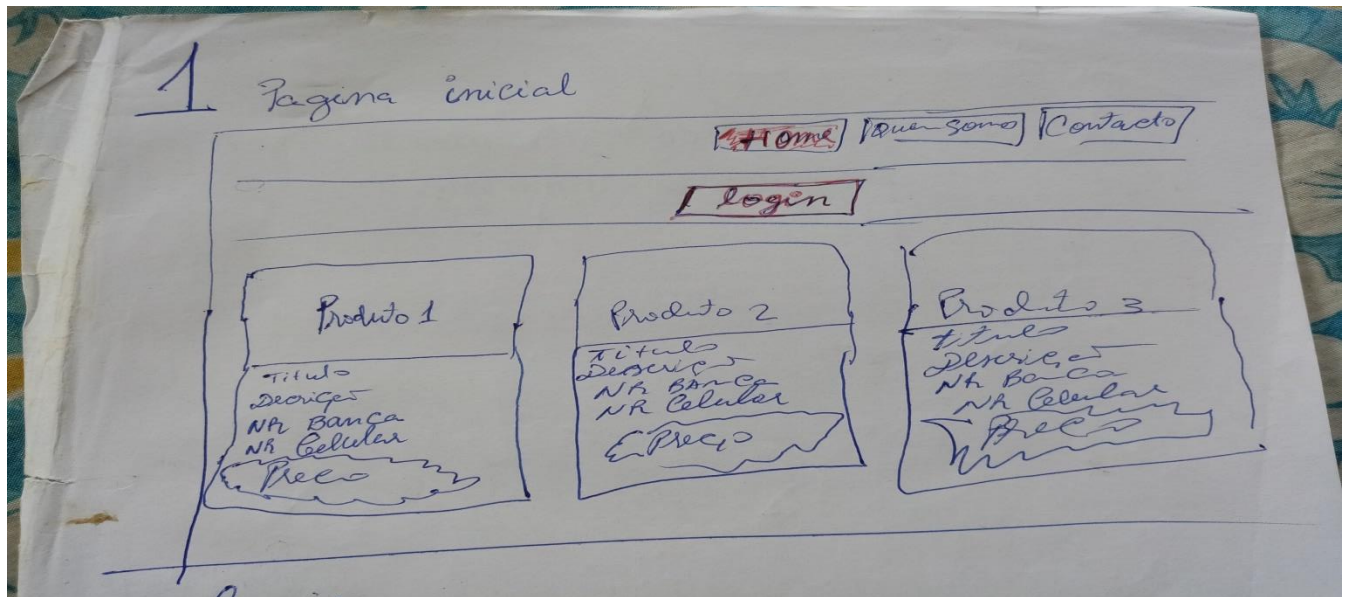 1 Pagina inicial
Home Quem somos Contacto
login
Produto 1
Titulo
Descrição
NR Banca
NR Celular
Preço
Produto 2
Titulo
Descrição
NR Banca
NR Celular
Preço
Produto 3
titulo
Descrição
NR Banca
NR Celular
Preço